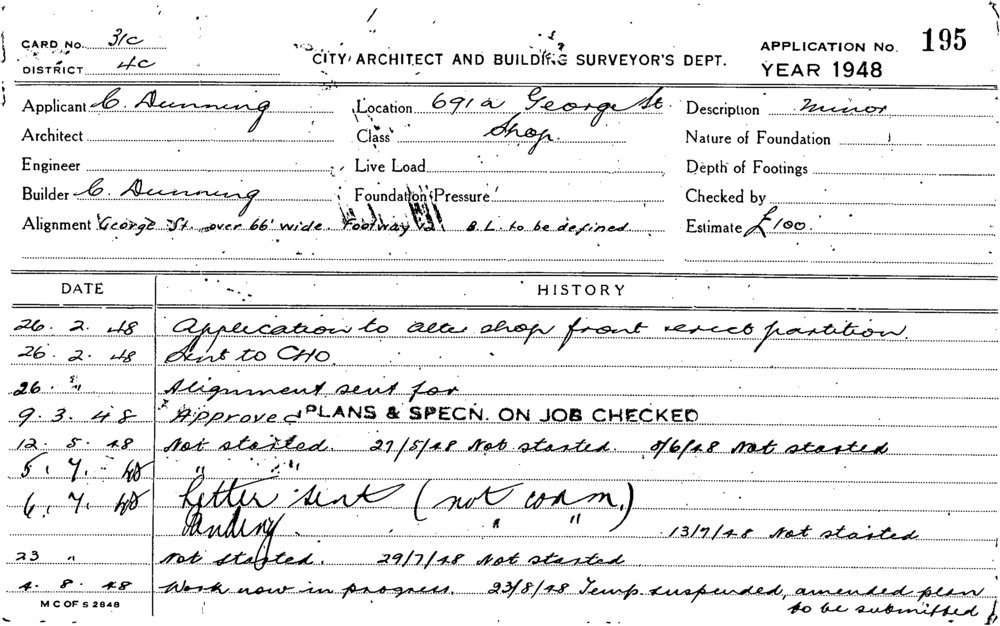 CARD No. 31c
DISTRICT 4C
CITY ARCHITECT AND BUILDING SURVEYOR'S DEPT.
APPLICATION No. 195
YEAR 1948
Applicant C. Dunning
Location 691a George St.
Description Minor
Architect
Class Shop
Nature of Foundation
Engineer
Live Load
Depth of Footings
Builder C. Dunning
Foundation Pressure
Checked by
Alignment George St. over 66' wide. Footway 12 B.L. to be defined
Estimate £100
DATE HISTORY
26. 2. 48 Application to alter shop front & erect partition.
26. 2. 48 Sent to CHO
26 " Alignment sent for
9. 3. 48 Approved PLANS & SPECN. ON JOB CHECKED
12. 5. 48 Not started. 27/5/48 Not started. 8/6/48 Not started
5. 7. 48 " "
6. 7. 48 Letter sent (not comm.)
Pending " " 13/7/48 Not started
23 " Not started. 29/7/48 Not started
4. 8. 48 Work now in progress. 23/8/48 Temp. suspended, amended plan
to be submitted
M C OF S 2848